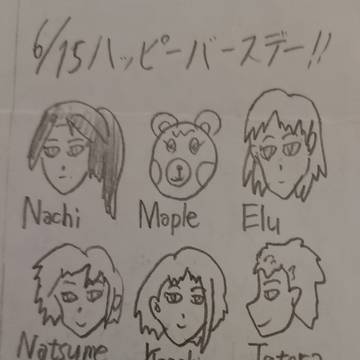 6/15ハッピーバースデー!!
Nachi Maple Elu
Natsume